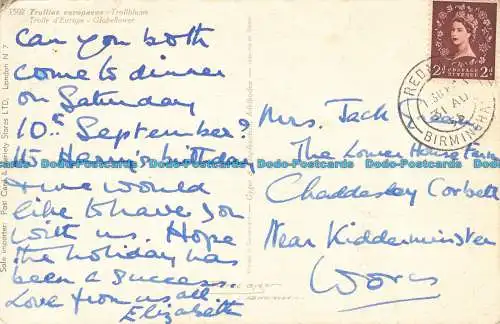 1502 Trollius europaeus - Trollblume
Trolle d'Europe - Globeflower
can you both
come to dinner
on Saturday
10th September?
its Harry's birthday
& we would
like to have you
with us. Hope
the holiday has
been a success.
Love from us all.
Elizabeth
Sole importer: Post Card & Variety Stores LTD. London N 7
2d POSTAGE REVENUE 2d
RED
31 AU
BIRMINGHAM
Mrs. Jack
The Lower House Farm
Chaddesley Corbett
Near Kidderminster
Worcs
Dodo-Postcards Dodo-Postcards Dodo-Postcards Dodo-Postcards Dodo-Postcards